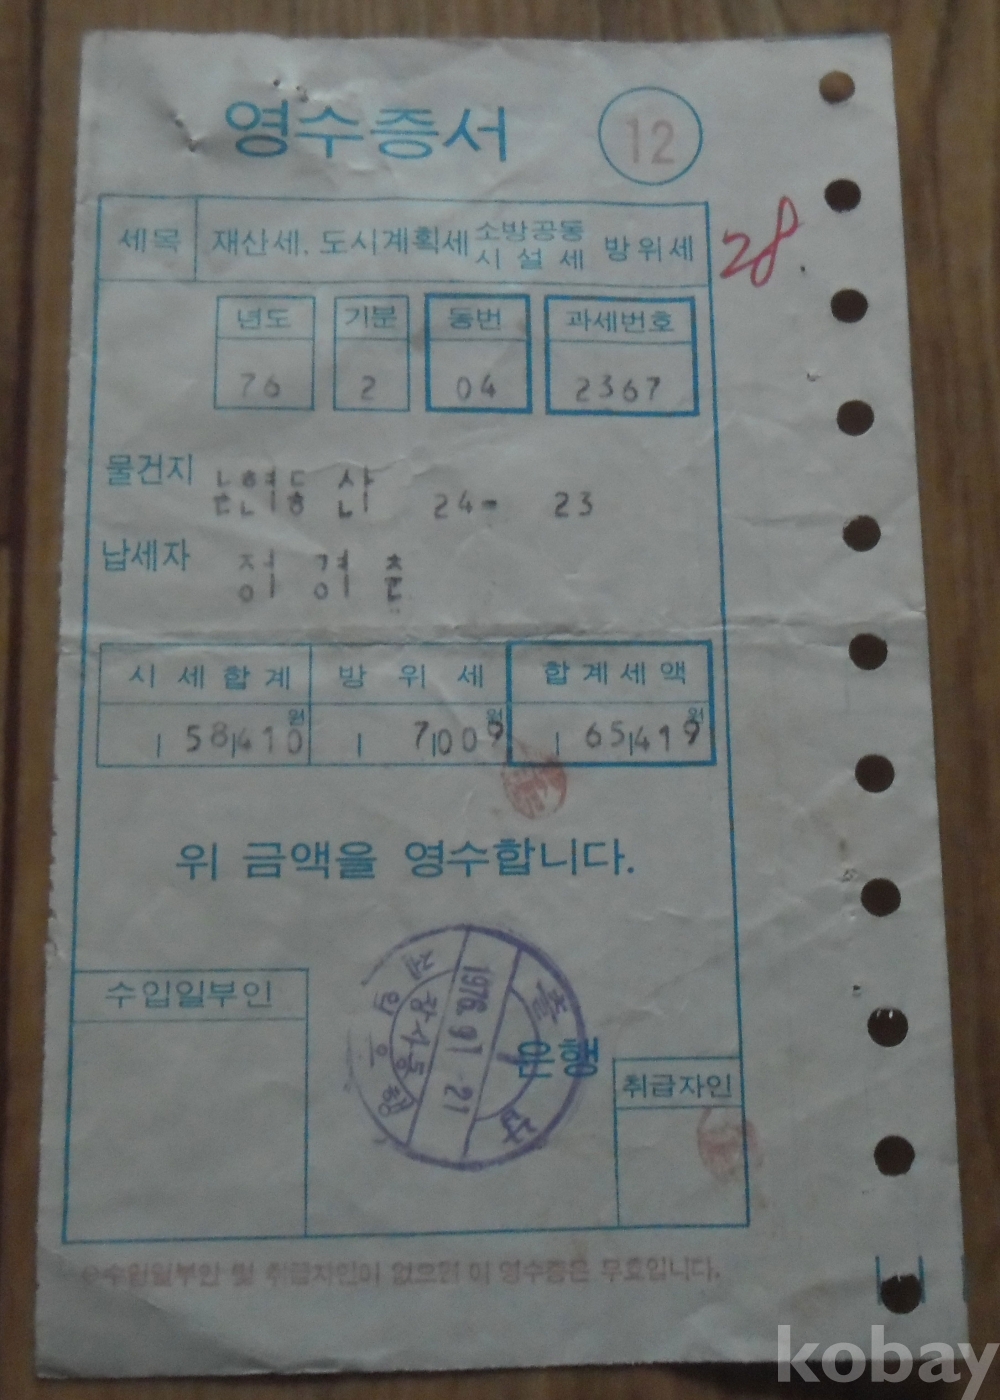 영수증서 12
세목 재산세. 도시계획세 소방공동시설세 방위세
28.
년도 기분 동번 과세번호
76 2 04 2367
물건지 24- 23
납세자
시세합계 방위세 합계세액
58,410원 7,009원 65,419원
위 금액을 영수합니다.
수입일부인
은행
취급자인
수입일부인 및 취급자인이 없으면 이 영수증은 무효입니다.
kobay